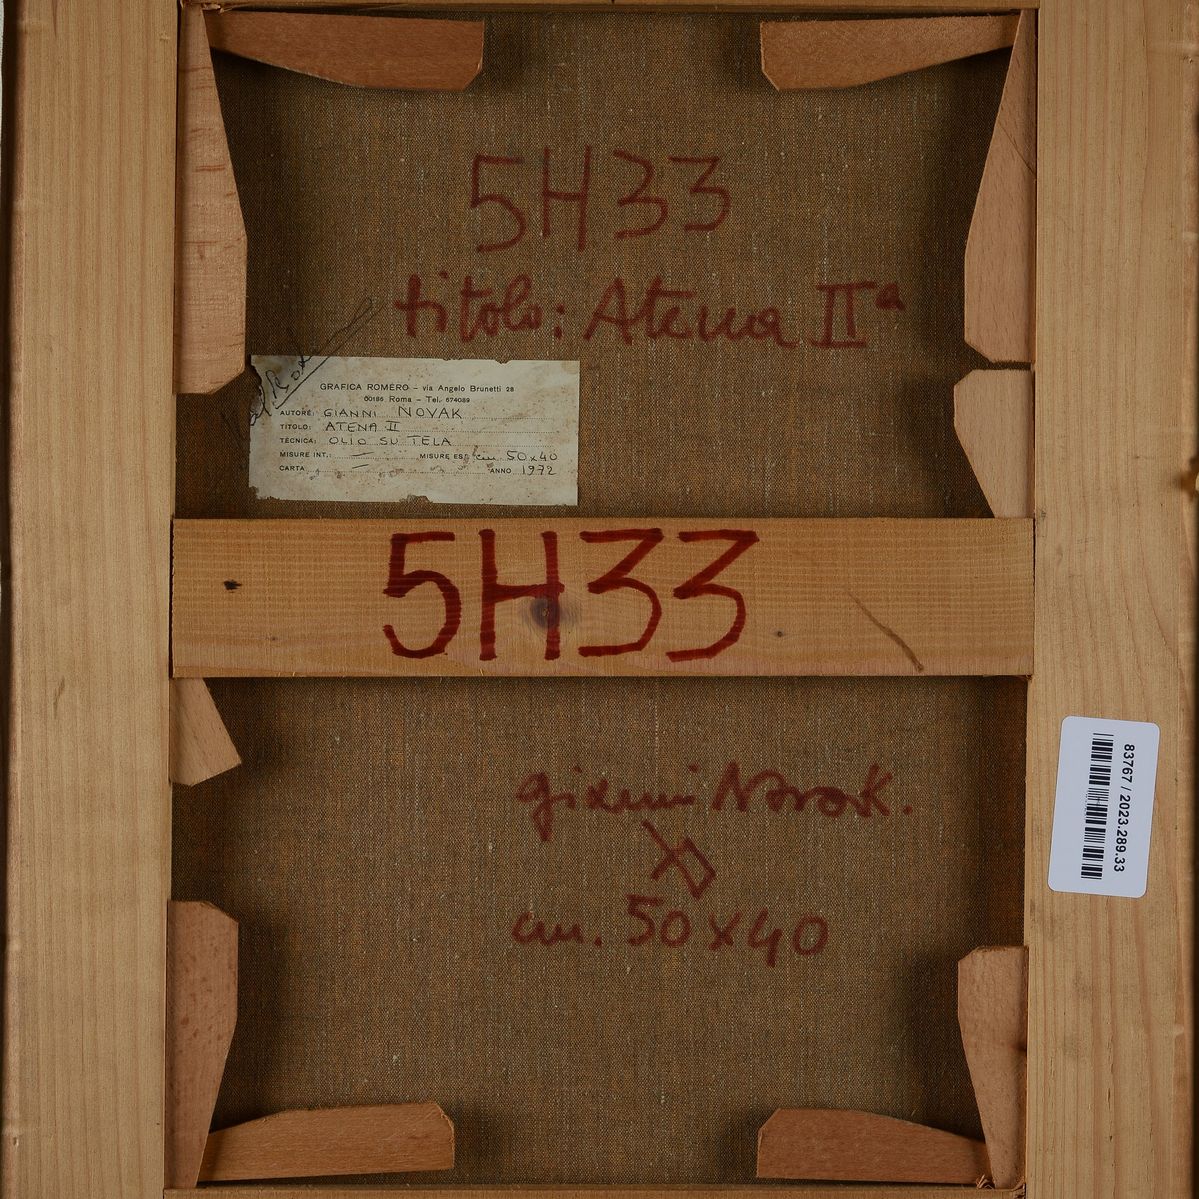 5H33
titolo: Atena IIª
GRAFICA ROMERO – via Angelo Brunetti 28
00186 Roma – Tel. 674089
AUTORE: GIANNI NOVAK
TITOLO: ATENA II
TECNICA: OLIO SU TELA
MISURE INT.: — MISURE EST. cm. 50x40
CARTA — ANNO 1972
5H33
gianni Novak.
cm. 50x40
83767 / 2023.289.33